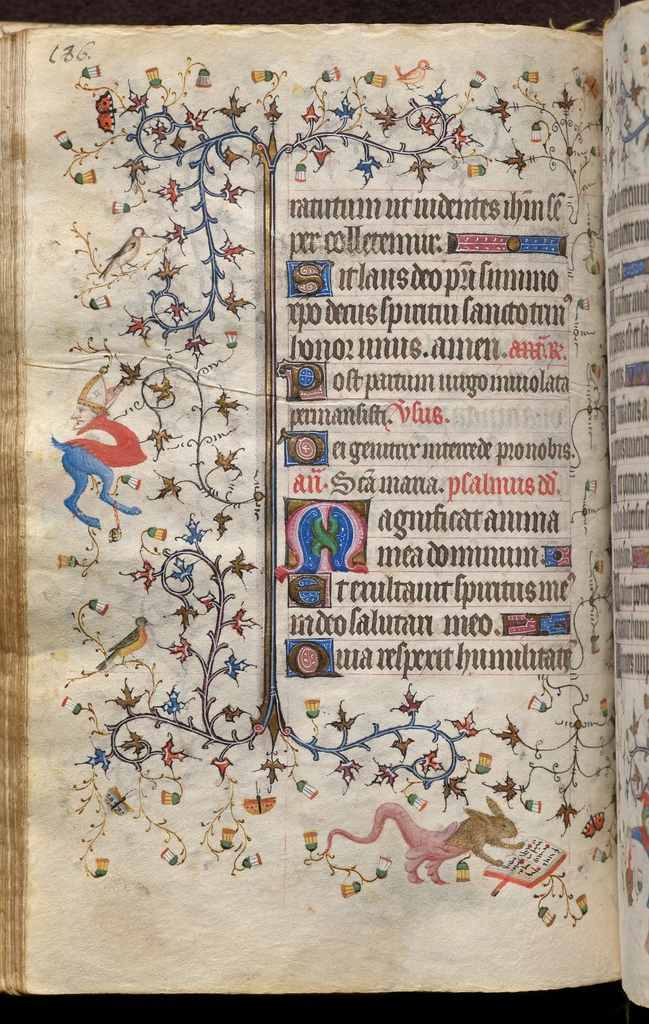 186.
ratutum ut uidentes ihm sē
per colletemur.
Sit laus deo pr̄i summo
xpo decus spiritui sancto trin9
honor unus. amen. ant. R.
Post partum uirgo inuiolata
permansisti. Vsus.
Dei genitrix intercede pro nobis.
añ. Scā maria. psalmus dd.
Magnificat anima
mea dominum.
Et exultauit spiritus me9
in deo salutari meo.
Quia respexit humilitatē